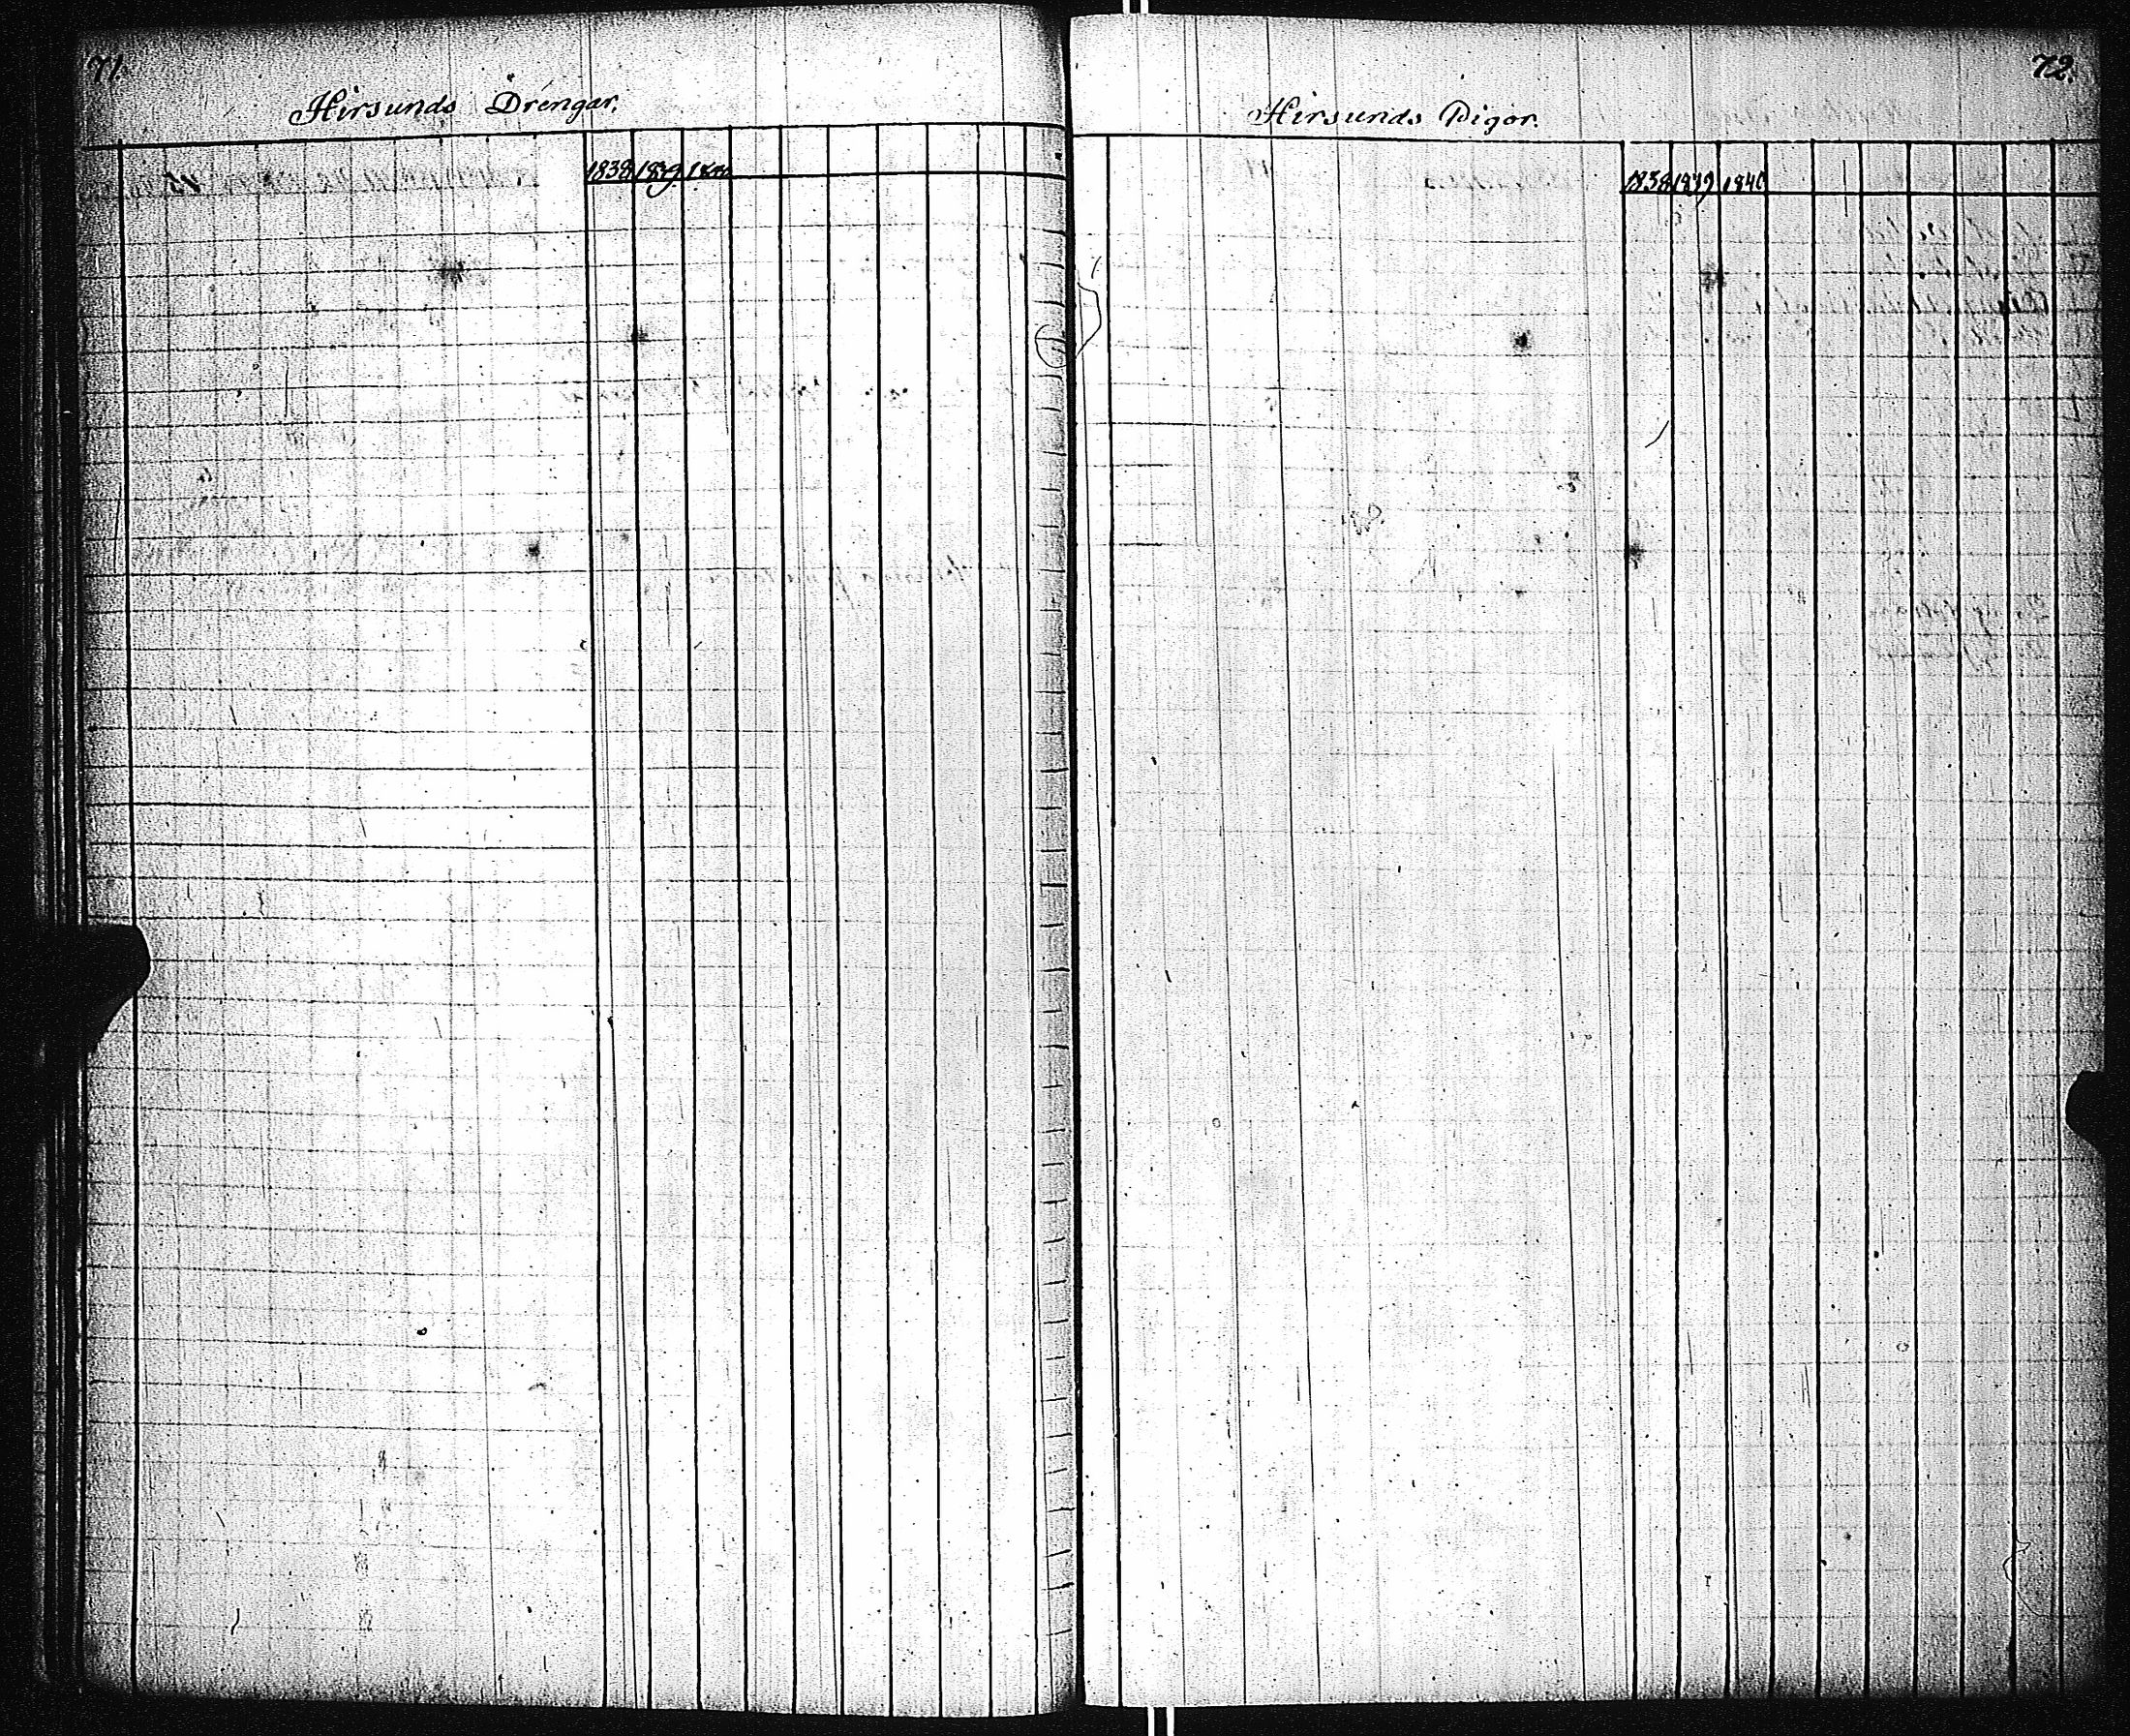 71.
Hirsunds Drengar.
1838 1839 1840
72.
Hirsunds Pigor.
1838 1839 1840